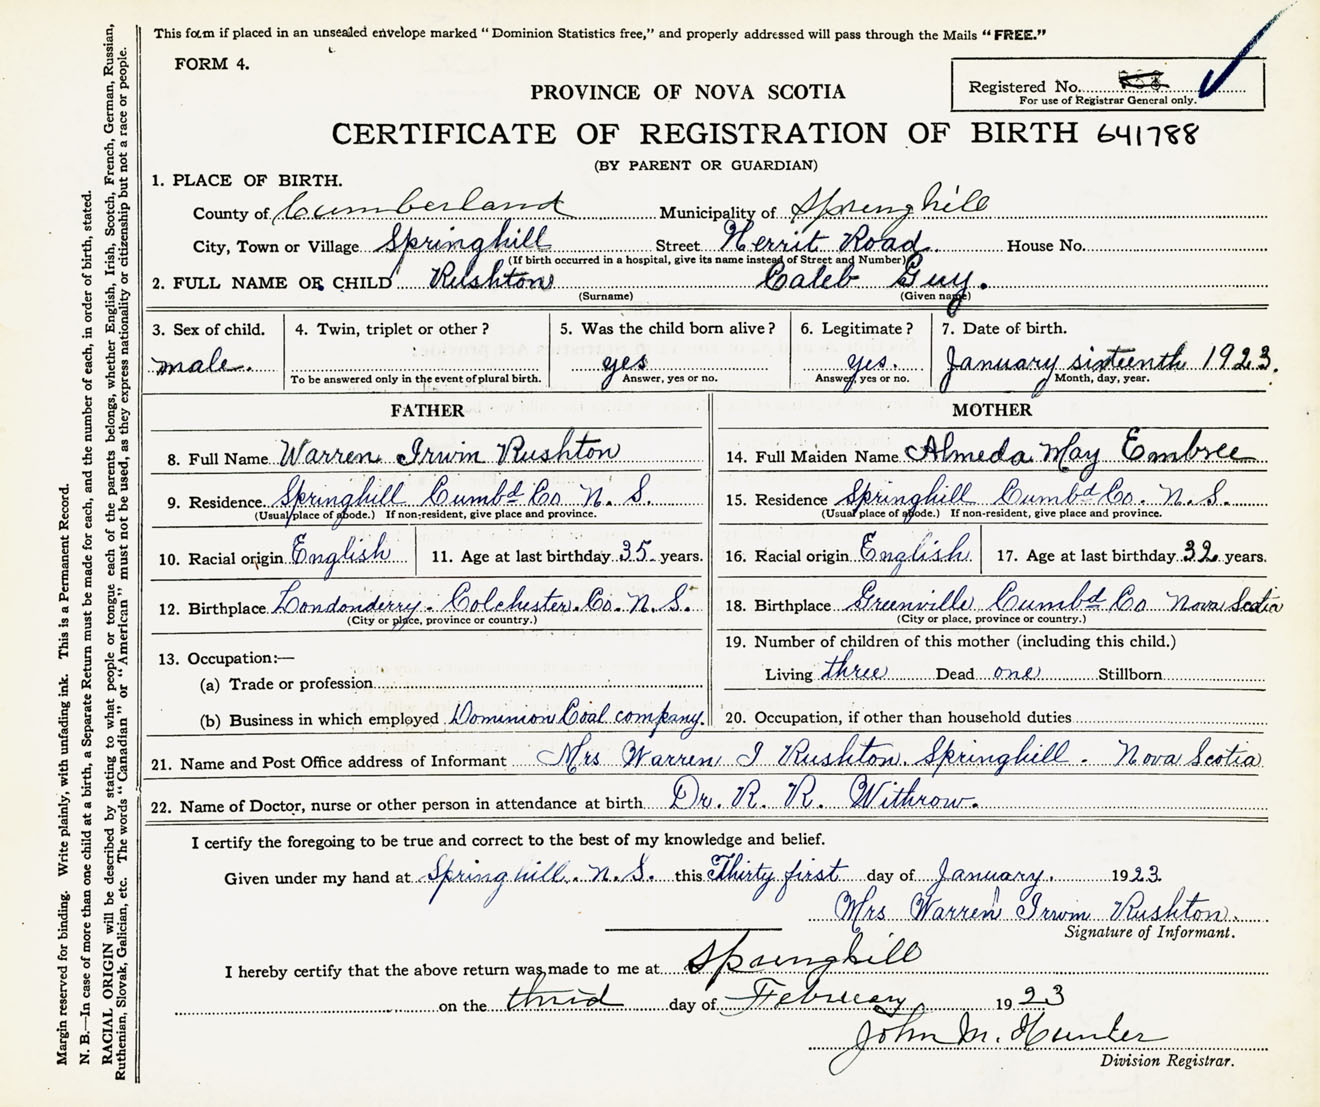 This form if placed in an unsealed envelope marked "Dominion Statistics free," and properly addressed will pass through the Mails "FREE."
FORM 4.
Registered No.
For use of Registrar General only.
PROVINCE OF NOVA SCOTIA
CERTIFICATE OF REGISTRATION OF BIRTH 641788
(BY PARENT OR GUARDIAN)
1. PLACE OF BIRTH.
County of Cumberland Municipality of Springhill
City, Town or Village Springhill Street Herrit Road House No.
(If birth occurred in a hospital, give its name instead of Street and Number)
2. FULL NAME OF CHILD Rushton Caleb Guy.
(Surname) (Given name)
3. Sex of child. 4. Twin, triplet or other? 5. Was the child born alive? 6. Legitimate? 7. Date of birth.
male. yes yes. January sixteenth 1923.
To be answered only in the event of plural birth. Answer, yes or no. Answer, yes or no. Month, day, year.
FATHER MOTHER
8. Full Name Warren Irwin Rushton 14. Full Maiden Name Almeda May Embree
9. Residence Springhill Cumbd Co N. S. 15. Residence Springhill Cumbd Co. N. S.
(Usual place of abode.) If non-resident, give place and province. (Usual place of abode.) If non-resident, give place and province.
10. Racial origin English 11. Age at last birthday 35 years. 16. Racial origin English 17. Age at last birthday 32 years.
12. Birthplace Londonderry. Colchester. Co. N. S. 18. Birthplace Greenville Cumbd Co Nova Scotia
(City or place, province or country.) (City or place, province or country.)
13. Occupation:— 19. Number of children of this mother (including this child.)
(a) Trade or profession Living three Dead one Stillborn
(b) Business in which employed Dominion Coal company. 20. Occupation, if other than household duties
21. Name and Post Office address of Informant Mrs Warren I Rushton. Springhill. Nova Scotia
22. Name of Doctor, nurse or other person in attendance at birth Dr. R. R. Withrow.
I certify the foregoing to be true and correct to the best of my knowledge and belief.
Given under my hand at Springhill. N. S. this Thirty first day of January. 1923
Mrs Warren Irwin Rushton.
Signature of Informant.
I hereby certify that the above return was made to me at Springhill
on the third day of February 1923
John M. Hunter
Division Registrar.
Margin reserved for binding. Write plainly, with unfading ink. This is a Permanent Record.
N. B.—In case of more than one child at a birth, a Separate Return must be made for each, and the number of each, in order of birth, stated.
RACIAL ORIGIN will be described by stating to what people or tongue each of the parents belongs, whether English, Irish, Scotch, French, German, Russian,
Ruthenian, Slovak, Galician, etc. The words "Canadian" or "American" must not be used, as they express nationality or citizenship but not a race or people.